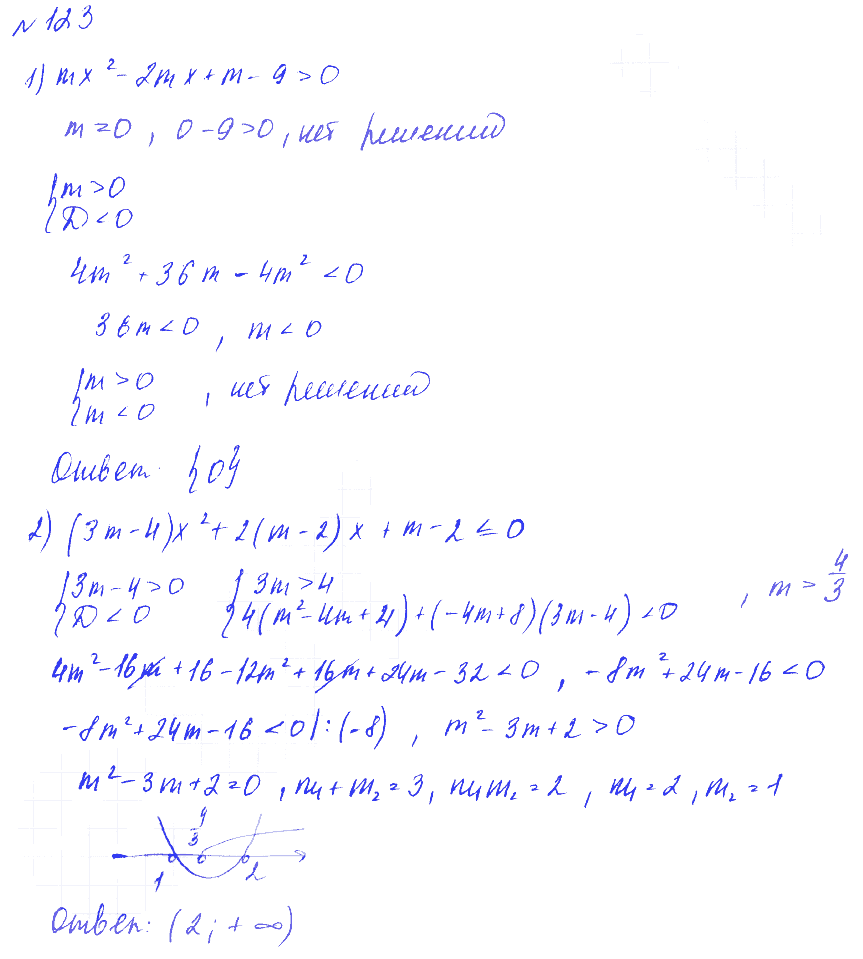 №123
1) mx² - 2mx + m - 9 > 0
m = 0, 0 - 9 > 0, нет решений
{m > 0
{D < 0
4m² + 36m - 4m² < 0
36m < 0, m < 0
{m > 0
{m < 0, нет решений
Ответ {0}
2) (3m - 4)x² + 2(m - 2)x + m - 2 ≤ 0
{3m - 4 > 0 {3m > 4
{D < 0 {4(m² - 4m + 4) + (-4m + 8)(3m - 4) < 0, m > 4/3
4m² - 16m + 16 - 12m² + 16m + 24m - 32 < 0, -8m² + 24m - 16 < 0
-8m² + 24m - 16 < 0 | : (-8), m² - 3m + 2 > 0
m² - 3m + 2 = 0, m₁ + m₂ = 3, m₁m₂ = 2, m₁ = 2, m₂ = 1
4/3
1 2
Ответ: (2; +∞)